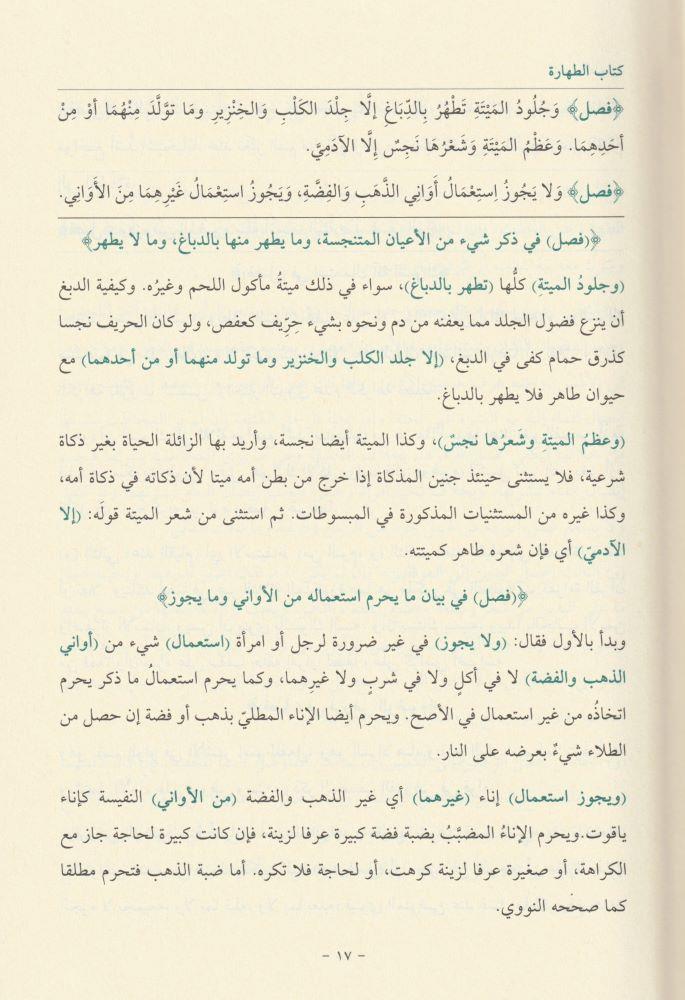 كتاب الطهارة
﴿فصل﴾ وَجُلُودُ المَيْتَةِ تَطْهُرُ بِالدِّبَاغِ إلَّا جِلْدَ الكَلْبِ وَالخِنْزِيرِ ومَا تَوَّلَّدَ مِنْهُمَا أوْ مِنْ
أحَدِهِمَا. وَعَظْمُ المَيْتَةِ وَشَعْرُهَا نَجِسٌ إِلَّا الآدَمِيَّ.
﴿فصل﴾ وَلا يَجُوزُ اِستِعْمَالُ أَوَانِي الذَّهَبِ وَالفِضَّةِ، وَيَجُوزُ استِعْمَالُ غَيْرِهِمَا مِنَ الأَوَانِي.
﴿(فصل) في ذكر شيء من الأعيان المتنجسة، وما يطهر منها بالدباغ، وما لا يطهر﴾
(وجلودُ الميتةِ) كلُّها (تطهر بالدباغ)، سواء في ذلك ميتةُ مأكول اللحم وغيرُه. وكيفية الدبغ
أن ينزع فضول الجلد مما يعفنه من دم ونحوه بشيء حِرِّيف كعفص، ولو كان الحريف نجسا
كذرق حمام كفى في الدبغ، (إلا جلد الكلب والخنزير وما تولد منهما أو من أحدهما) مع
حيوان طاهر فلا يطهر بالدباغ.
(وعظمُ الميتةِ وشَعرُها نجسٌ)، وكذا الميتة أيضا نجسة، وأريد بها الزائلة الحياة بغير ذكاة
شرعية، فلا يستثنى حينئذ جنين المذكاة إذا خرج من بطن أمه ميتا لأن ذكاته في ذكاة أمه،
وكذا غيره من المستثنيات المذكورة في المبسوطات. ثم استثنى من شعر الميتة قولَه: (إلا
الآدميّ) أي فإن شعره طاهر كميتته.
﴿(فصل) في بيان ما يحرم استعماله من الأواني وما يجوز﴾
وبدأ بالأول فقال: (ولا يجوز) في غير ضرورة لرجل أو امرأة (استعمال) شيء من (أواني
الذهب والفضة) لا في أكلٍ ولا في شربٍ ولا غيرِهما، وكما يحرم استعمالُ ما ذكر يحرم
اتخاذُه من غير استعمال في الأصح. ويحرم أيضا الإناء المطليّ بذهب أو فضة إن حصل من
الطلاء شيءٌ بعرضه على النار.
(ويجوز استعمال) إناء (غيرهما) أي غير الذهب والفضة (من الأواني) النفيسة كإناء
ياقوت.ويحرم الإناءُ المضبَّبُ بضبة فضة كبيرة عرفا لزينة، فإن كانت كبيرة لحاجة جاز مع
الكراهة، أو صغيرة عرفا لزينة كرهت، أو لحاجة فلا تكره. أما ضبة الذهب فتحرم مطلقا
كما صححه النووي.
- ١٧ -